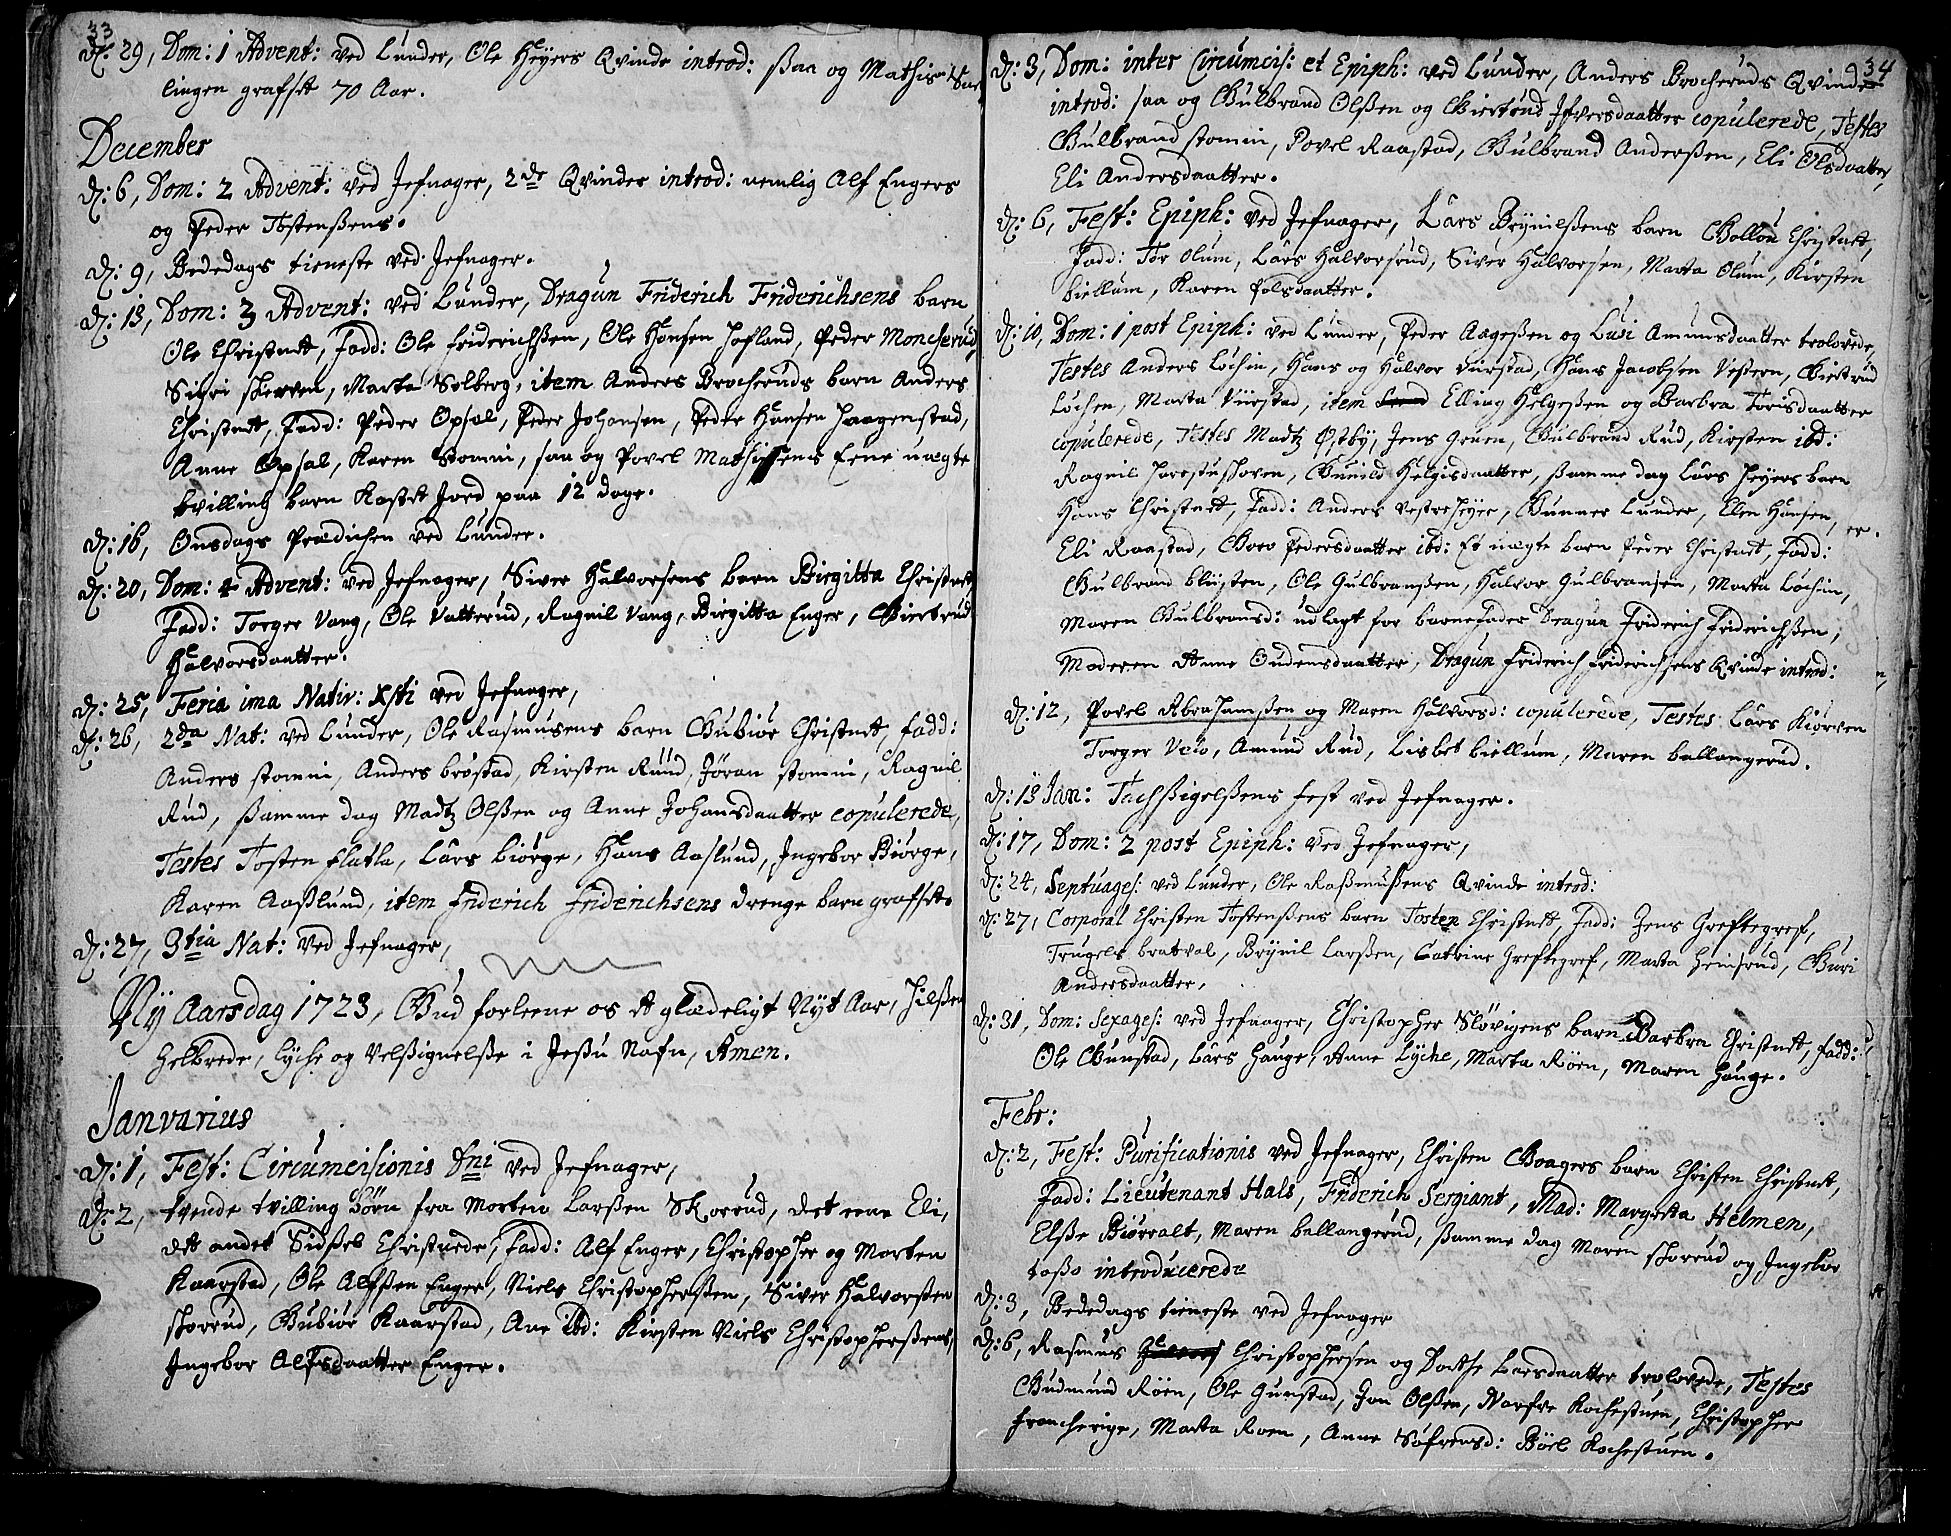 33
D: 29, Dom: 1 Advent: ved Lunder, Ole Heÿers Qvinde introd: ßaa og Mathis
lingen grafset 70 Aar.
December
D: 6, Dom: 2 Advent: ved Jefnager, 2de Qvinder introd: nemlig Alf Engers
og Peder Tostenßens.
D: 9, Bededags tieneste ved Jefnager.
D: 13, Dom: 3 Advent: ved Lunder, Dragun Friderich Friderichsens barn
Ole Christnet, Fadd: Ole Friderichßen, Ole Hansen Hofland, Peder Moncherud,
Siuri skerven, Marta Solberg, item Anders Brocheruds barn Anders
Christnet, Fadd: Peder Opsal, Peder Johansen, Peder Hansen Haagenstad,
Anne Opsal, Karen Stomni, saa og Povel Mathisens Eene uægte
tvilling barn kastet Jord paa 12 dage.
D: 16, Onsdags Prædichen ved Lunder.
D: 20, Dom: 4 Advent: ved Jefnager, Siver Halvorsens barn Birgitta Christnet
Fadd: Torger Vang, Ole Vatterud, Ragnil Vang, Birgitta Enger, Giertrud
Halvorsdaatter.
D: 25, Feria ima Nativ: Xsti ved Jefnager,
D: 26, 2da Nat: ved Lunder, Ole Rasmusens barn Gubiør Christnet, fadd:
Anders stomni, Anders brøstad, Kirsten Rüüd, Jöran stomni, Ragnil
Rud, ßamme dag Madtz Olßen og Anne Johansdaatter copulerede,
Testes Tosten flatla, Lars biörge, Hans Aaslund, Ingebor Biörge,
Karen Aaßlund, item Friderich Friderichsens drenge barn grafset
D: 27, 3tia Nat: ved Jefnager,
Nÿ Aarsdag 1723, Gud forleene os et glædeligt Nyt Aar, Hilßen
Helbrede, lÿche og Velßignelße i Jeßu Nafn, Amen.
Janvarius
D: 1, Fest: Circumcisionis Dni ved Jefnager,
D: 2, tvende tvilling Börn fra Morten Larßen Skorrud, det eene Eli,
det andet Sidßel Christnede, Fadd: Alf Enger, Christopher og Morten
Kaarstad, Ole Alfßen Enger, Niels Christopherßen, Siver Halvorsten
skorrud, Gubiör Kaarstad, Ane ibd: Kirsten Niels Christopherßens,
Ingebor Alfsdaatter Enger.
34
D: 3, Dom: inter Circumcis: et Epiph: ved Lunder, Anders Brocheruds Qvinde
introd: saa og Gulbrand Olßen og Giertrud Ifversdaatter copulerede, Testes
Gulbrand stomni, Povel Raastad, Gulbrand Anderßen, Eli Olsdaatter,
Eli Andersdaatter.
D: 6, Fest: Epiph: ved Jefnager, Lars Brynilßens barn Gollou Christnet,
Fadd: Tor Olum, Lars Halvorsrud, Siver Halvorsen, Marta Olum, Kirsten
biellum, Karen Polsdaatter.
D: 10, Dom: 1 post Epiph: ved Lunder, Peder Aageßen og Lusi Amunsdaatter trolovede,
Testes Anders Lochin, Hans og Halvor Viirstad, Hans Jacobsen Vestern, Giertrud
Lochen, Marta Viirstad, item Elling Helgeßen og Barbra Torisdaatter
copulerede, Testes Madtz Østby, Jens Gruen, Gulbrand Rud, Kirsten ibd:
Ragnil Harestuskoven, Gunild Helgisdaatter, ßamme dag Lars Heyers barn
Hans Christnet, Fadd: Anders Vestreheyer, Gunner Lunder, Elen Hansen,
Eli Raastad, Goro Pedersdaatter ibd: Et uægte barn Peder Christnet, Fadd:
Gulbrand blüsten, Ole Gulbranßen, Halvor Gulbransen, Marta Lochin,
Maren Gulbransd: udlagt for barnefader Dragun Friderich Friderichßen,
Moderen Anne Gudensdaatter, Dragun Friderich Friderichsens Qvinde introd:
D: 12, Povel Abrahamßen og Maren Halvorsd: copulerede, Testes Lars Kiörven
Torger Velo, Amund Rud, Lisbet biellum, Maren ballangerud.
D: 13 Jan: Tachßigelßens fest ved Jefnager.
D: 17, Dom: 2 post Epiph: ved Jefnager,
D: 24, Septuages: ved Lunder, Ole Raßmußens Qvinde introd:
D: 27, Corporal Christen Tostenßens barn Tosten Christnet, Fadd: Jens Greftegref,
Trugels bratval, Brynil Larßen, Catrine Greftegref, Marta Heinsrud, Guri
Andersdaatter,
D: 31, Dom: Sexages: ved Jefnager, Christopher Slövigens barn Barbra Christnet, fadd:
Ole Gunstad, Lars Hauge, Anne Lyche, Marta Röen, Maren Hauge.
Febr:
D: 2, Fest: Purificationis ved Jefnager, Christen Goagers barn Christen Christnet,
Fadd: Lieutenant Hals, Friderich Sergiant, Mad: Margreta Helmen,
Elße Biörralt, Maren ballangerud, ßamme dag Maren skorrud og Ingebor
toßo introducerede
D: 3, Bededags tieneste ved Jefnager
D: 6, Rasmus Christophersen og Dorthe Larsdaatter trolovede, Testes
Gudmund Röen, Ole Gunstad, Jon Olßen, Narfve Kochestuen, Christopher
Francherige, Marta Roen, Anne Söfrensd: Böel Kochestuen.